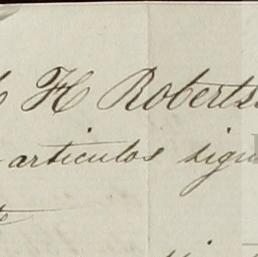 H Roberts
articulos sigu